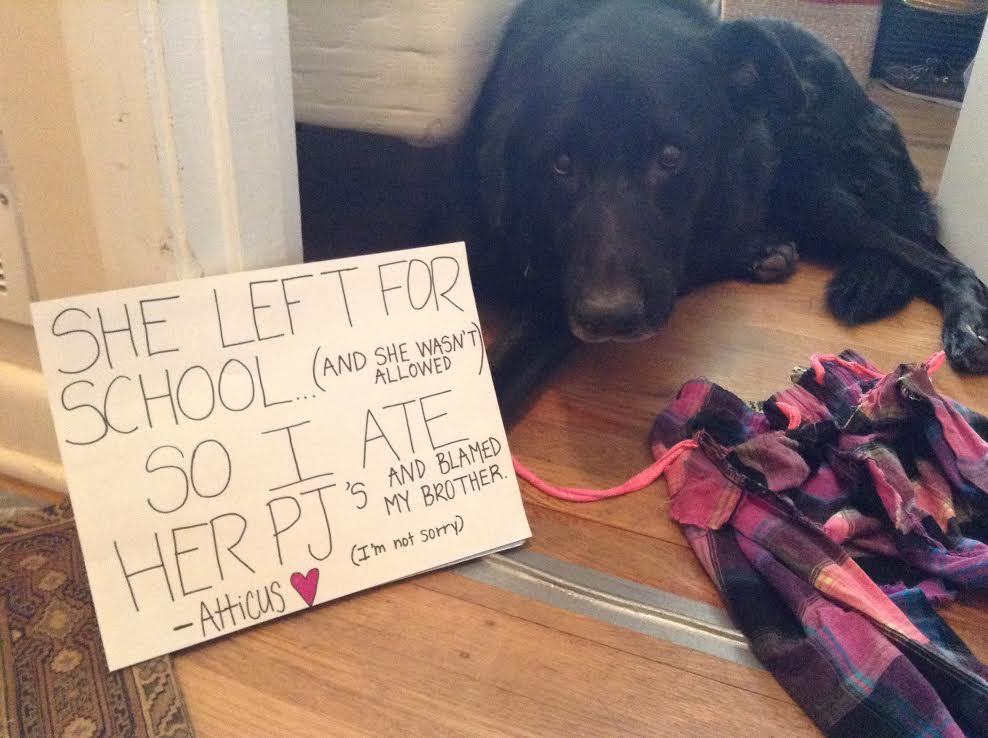 SHE LEFT FOR
SCHOOL...(AND SHE WASN'T ALLOWED)
SO I ATE
HER PJ'S AND BLAMED MY BROTHER.
(I'm not sorry)
-Atticus ♥